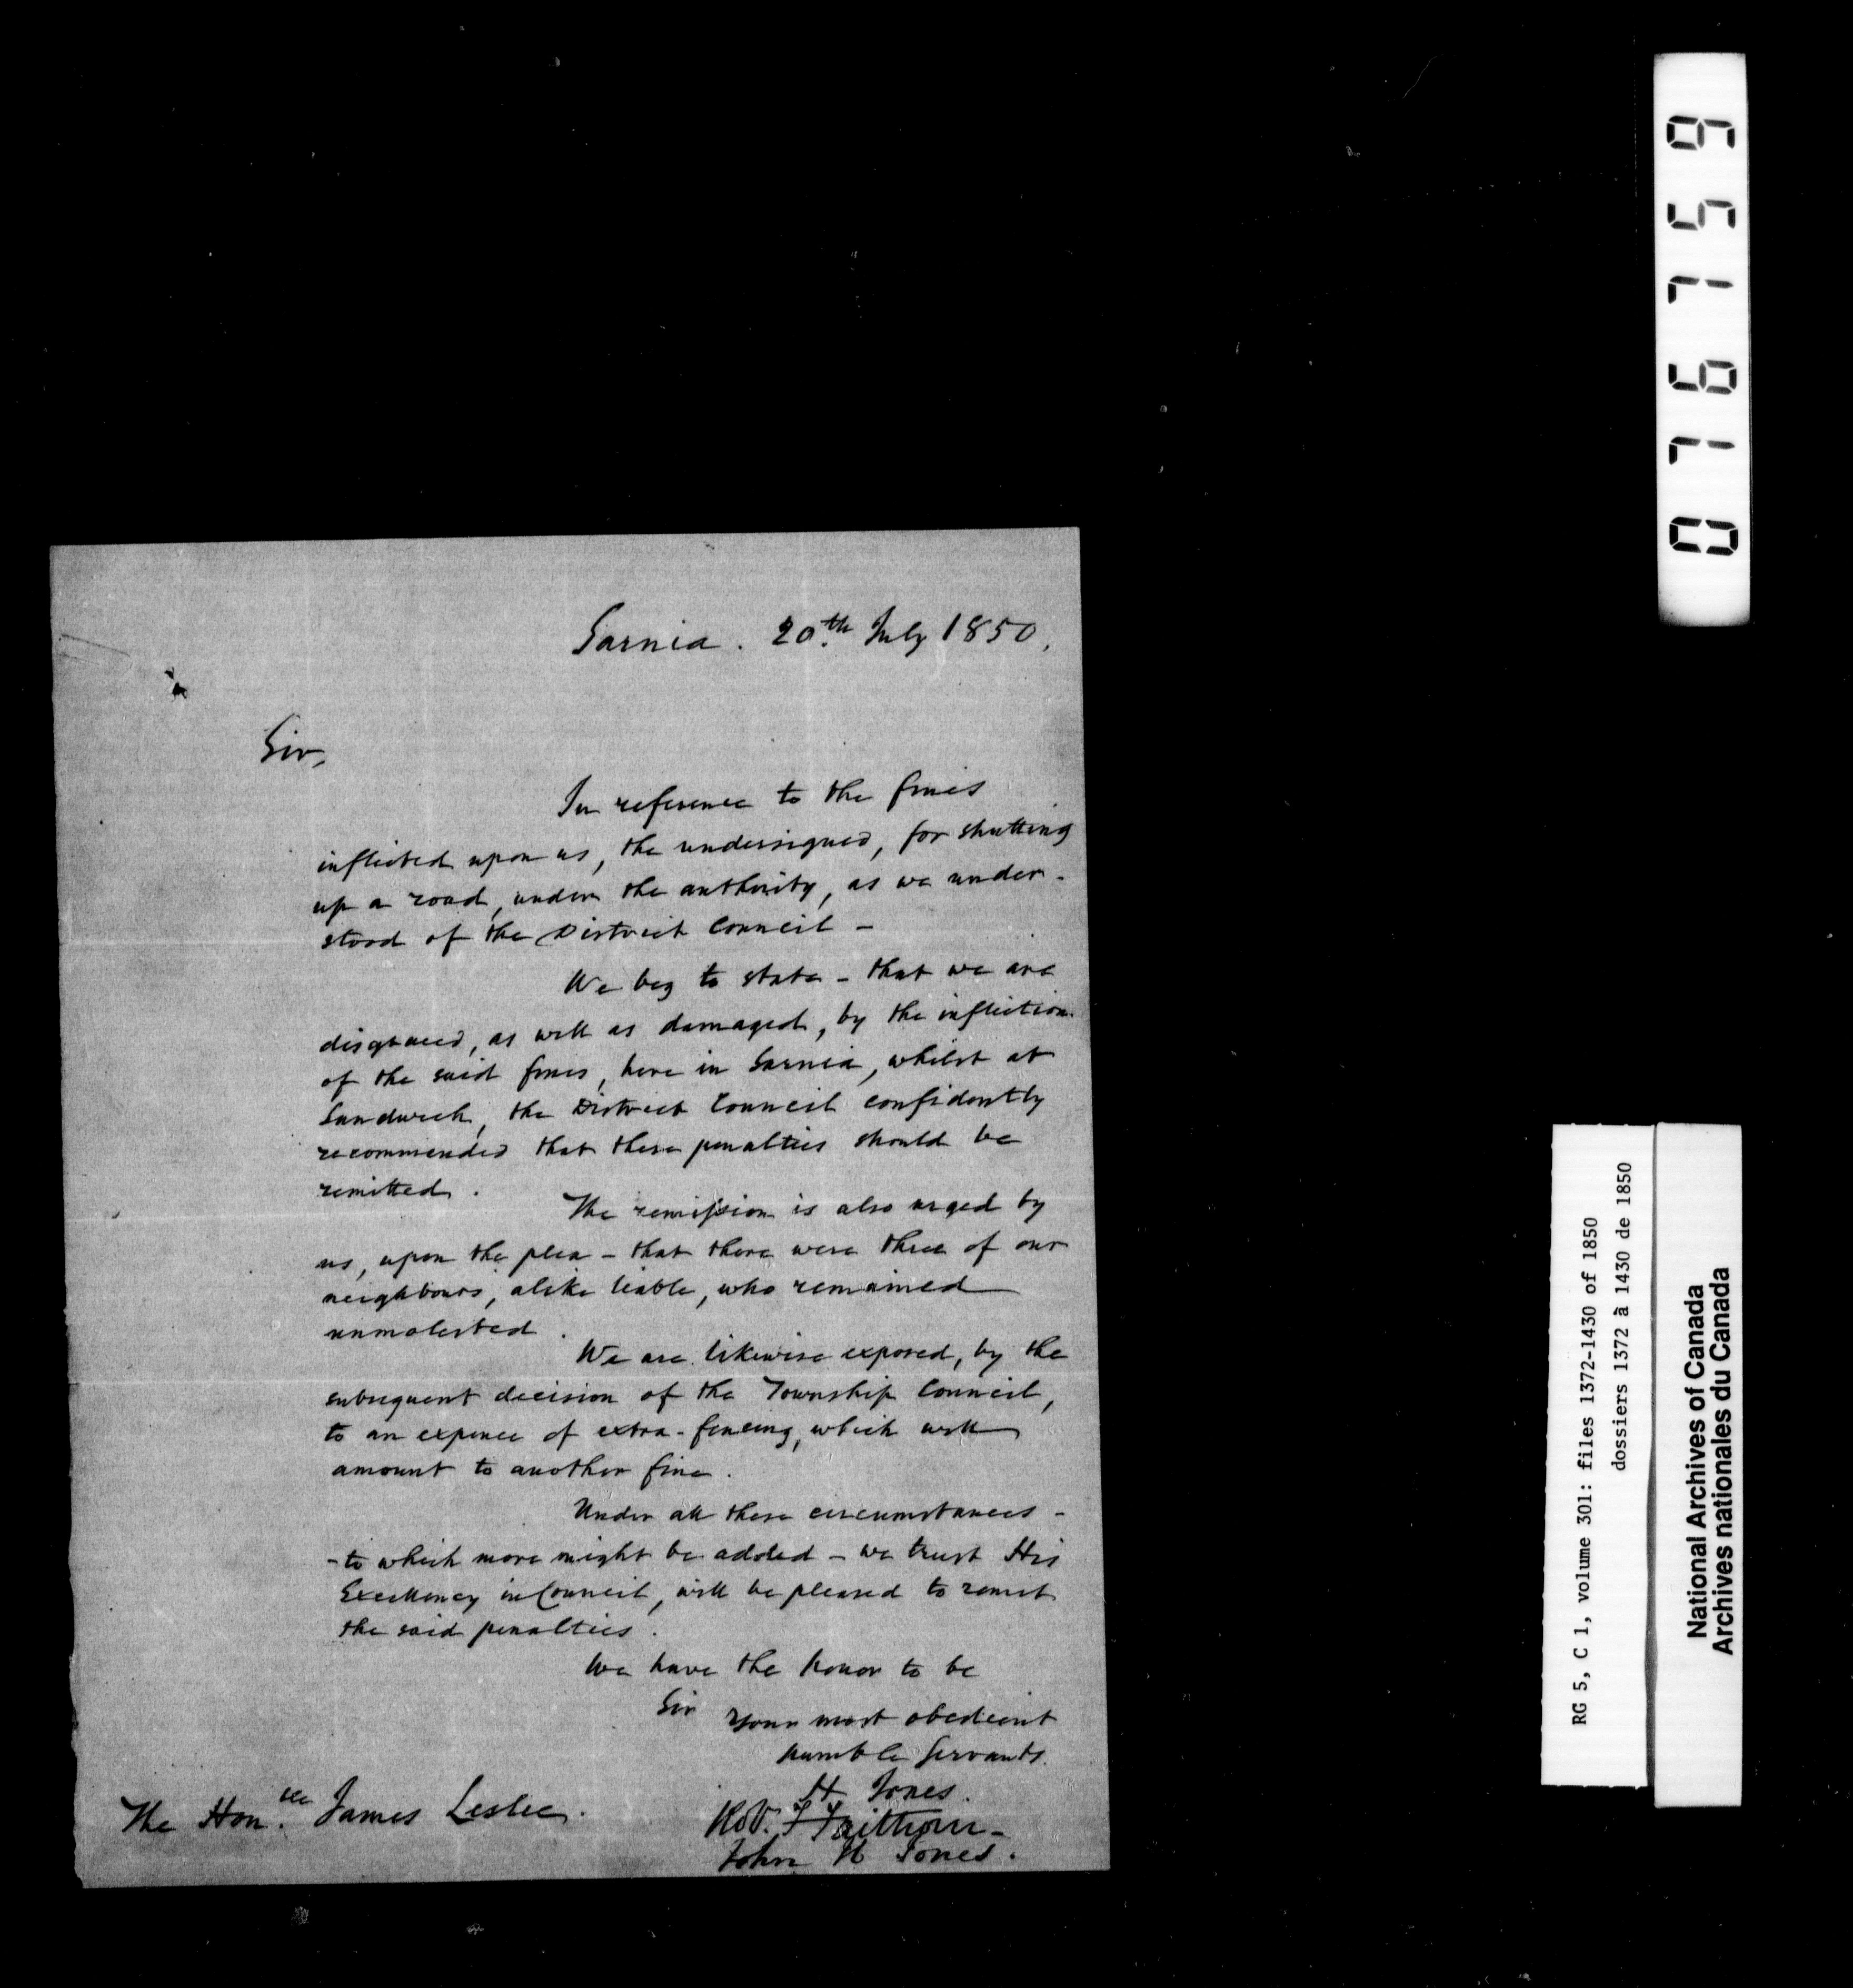 Sarnia. 20th July 1850.
Sir,
In reference to the fines
inflicted upon us, the undersigned, for shutting
up a road, under the authority, as we under-
stood of the District Council -
We beg to state - that we are
disgraced, as well as damaged, by the infliction
of the said fines, here in Sarnia, whilst at
Sandwich, the District Council confidently
recommended that these penalties should be
remitted.
The remission is also urged by
us, upon the plea - that there were three of our
neighbours, alike liable, who remained
unmolested.
We are likewise exposed, by the
subsequent decision of the Township Council,
to an expence of extra-fencing, which will
amount to another fine.
Under all these circumstances -
- to which more might be added - we trust His
Excellency in Council, will be pleased to remit
the said penalties.
We have the honor to be
Sir
Your most obedient
humble Servants.
H Jones.
Robt. Faithorn
John H Jones.
The Honble James Leslie.
076759
RG 5, C 1, volume 301: files 1372-1430 of 1850
dossiers 1372 à 1430 de 1850
National Archives of Canada
Archives nationales du Canada